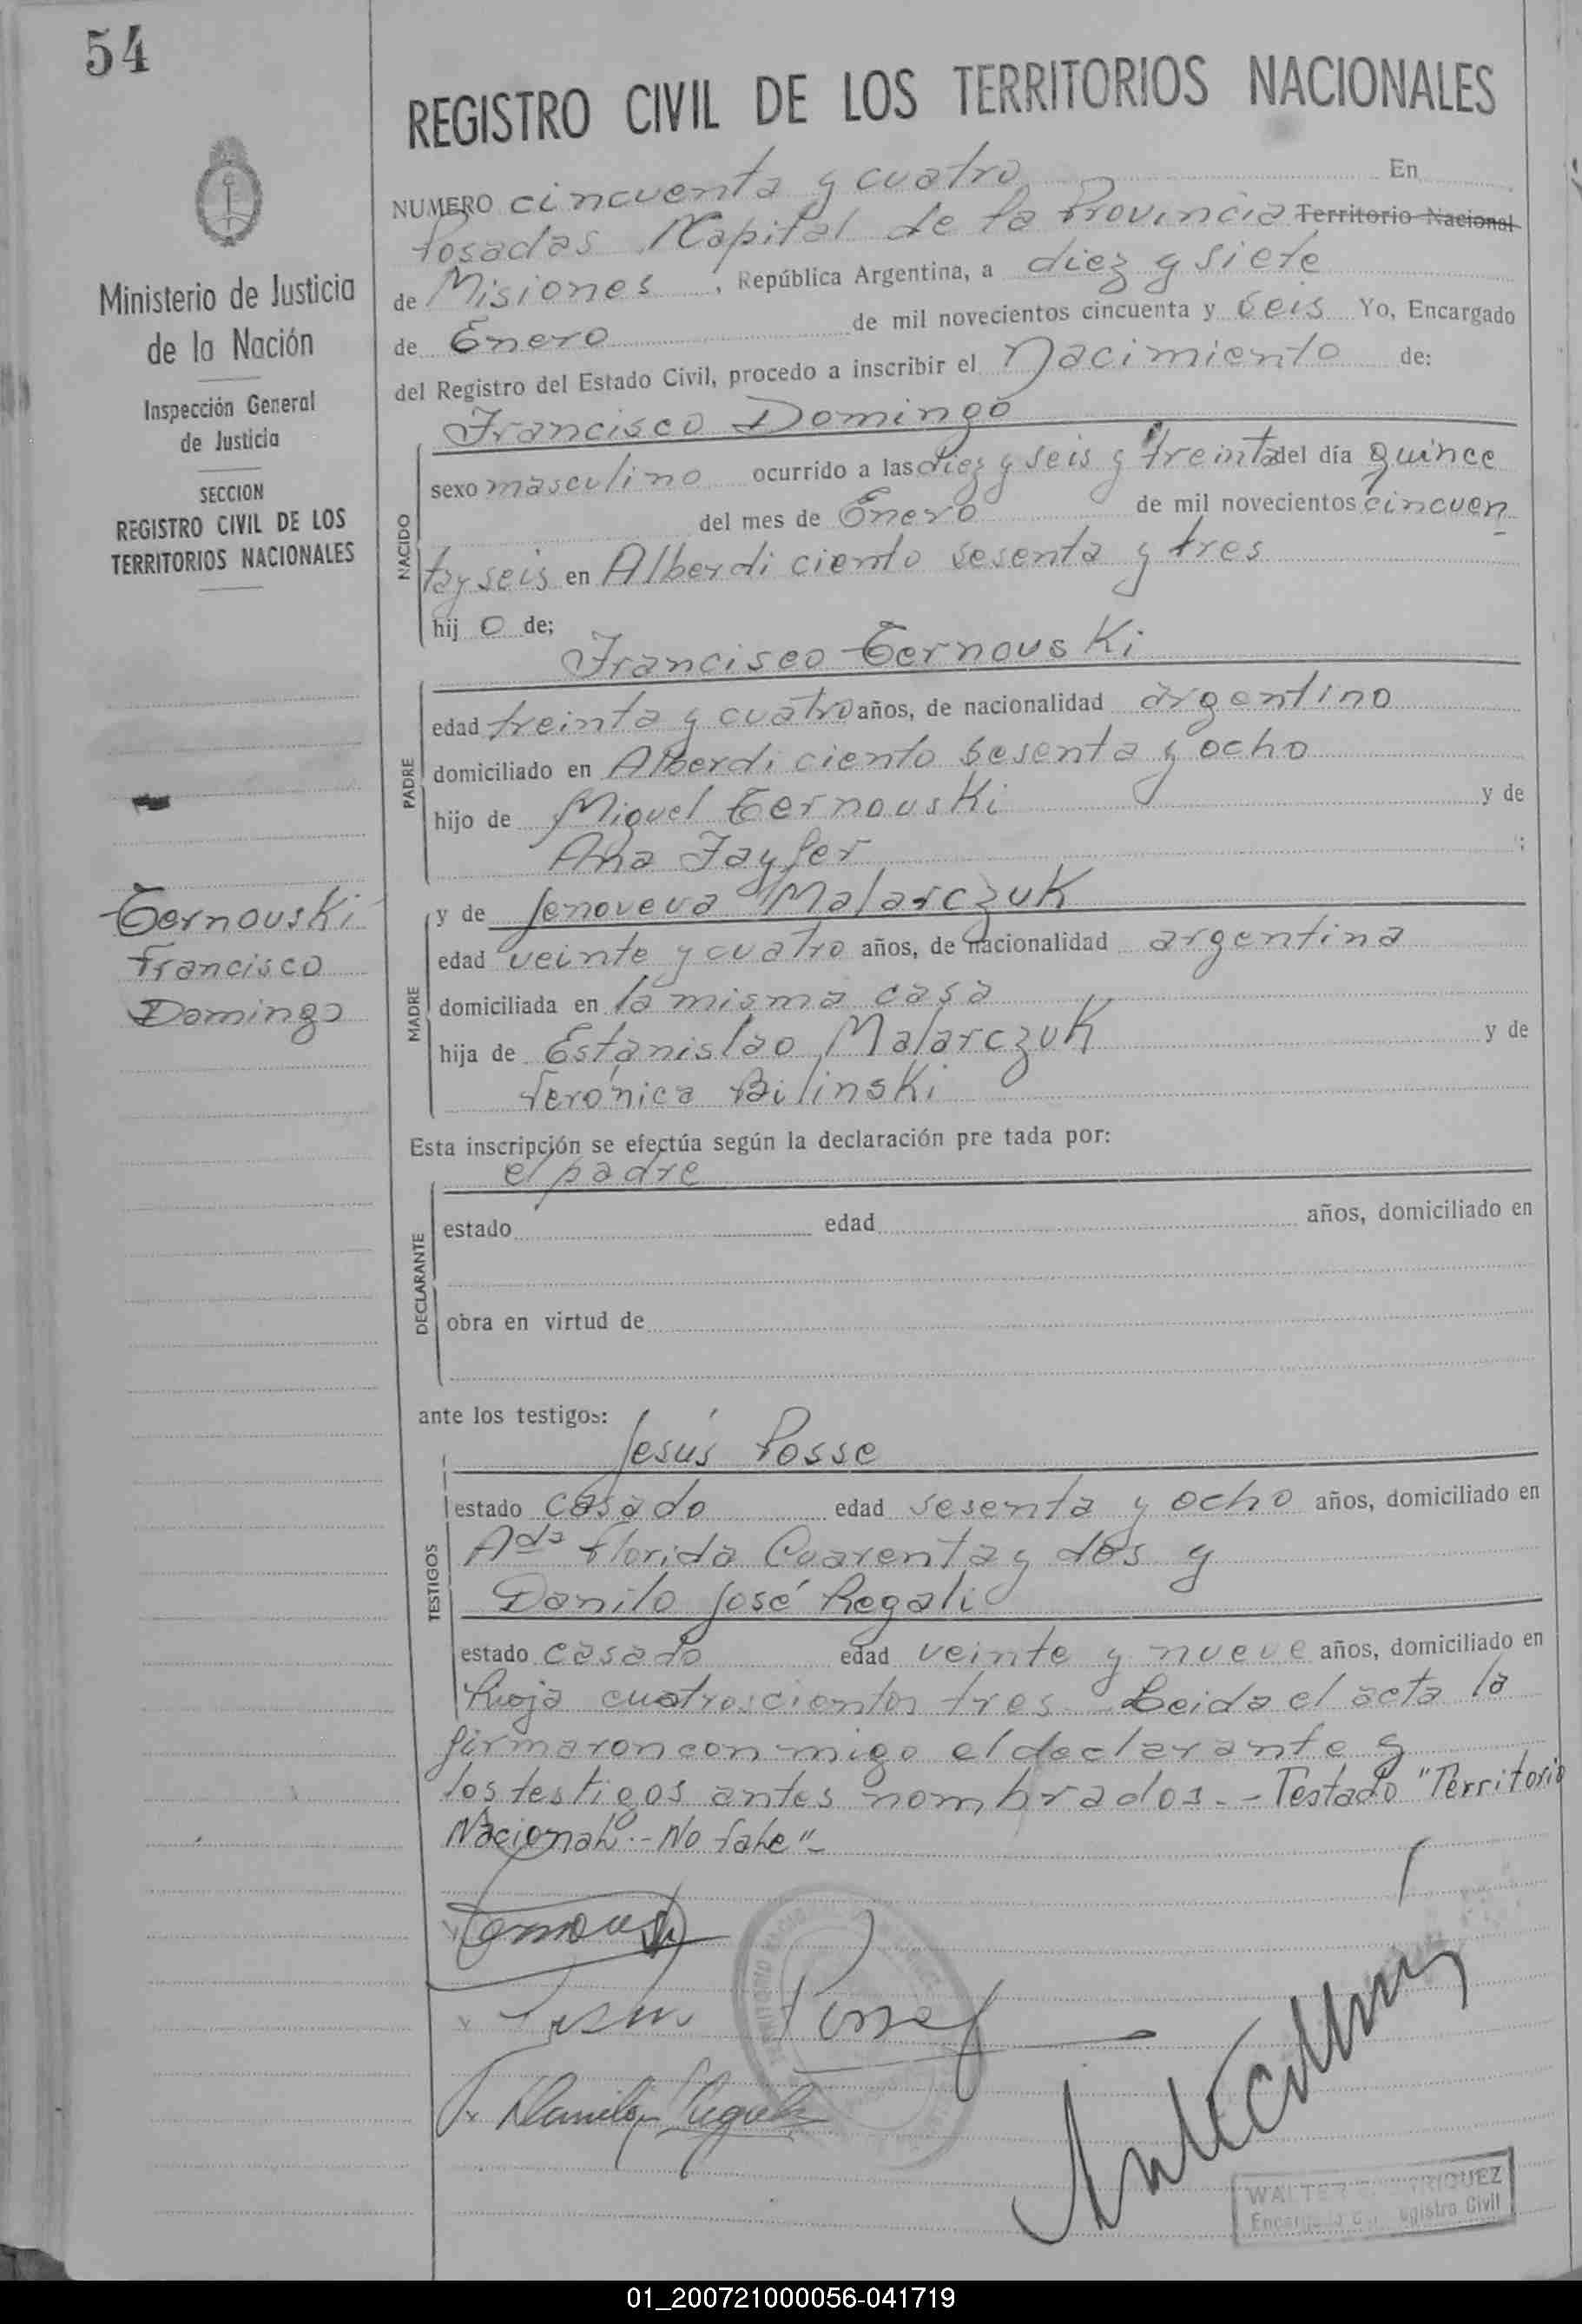 54
REGISTRO CIVIL DE LOS TERRITORIOS NACIONALES
Ministerio de Justicia
de la Nación
Inspección General
de Justicia
SECCION
REGISTRO CIVIL DE LOS
TERRITORIOS NACIONALES
Ternouski
Francisco
Domingo
NUMERO cincuenta y cuatro En
Posadas, Capital de la Provincia Territorio Nacional
de Misiones, República Argentina, a diez y siete
de Enero de mil novecientos cincuenta y seis Yo, Encargado
del Registro del Estado Civil, procedo a inscribir el Nacimiento de:
Francisco Domingo
NACIDO
sexo masculino ocurrido a las diez y seis y treinta del día quince
del mes de Enero de mil novecientos cincuen
ta y seis en Alberdi ciento sesenta y tres
hij o de;
Francisco Ternouski
PADRE
edad treinta y cuatro años, de nacionalidad argentino
domiciliado en Alberdi ciento sesenta y ocho
hijo de Miguel Ternouski y de
Ana Fayfer ;
MADRE
y de Jenoveva Malarczuk
edad veinte y cuatro años, de nacionalidad argentina
domiciliada en la misma casa
hija de Estanislao Malarczuk y de
Verónica Bilinski
Esta inscripción se efectúa según la declaración pre tada por:
el padre
DECLARANTE
estado edad años, domiciliado en
obra en virtud de
ante los testigos:
Jesús Posse
TESTIGOS
estado casado edad sesenta y ocho años, domiciliado en
Ada Florida Cuarenta y dos y
Danilo José Regali
estado casado edad veinte y nueve años, domiciliado en
Rioja cuatroscientos tres - Leida el acta la
firmaron con migo el declarante y
los testigos antes nombrados.- Testado "Territorio
Nacional".- No Vale"-
Ternouski
Posse
Danilo J Regali
WALTER ENRIQUEZ
Registro Civil
01_200721000056-041719